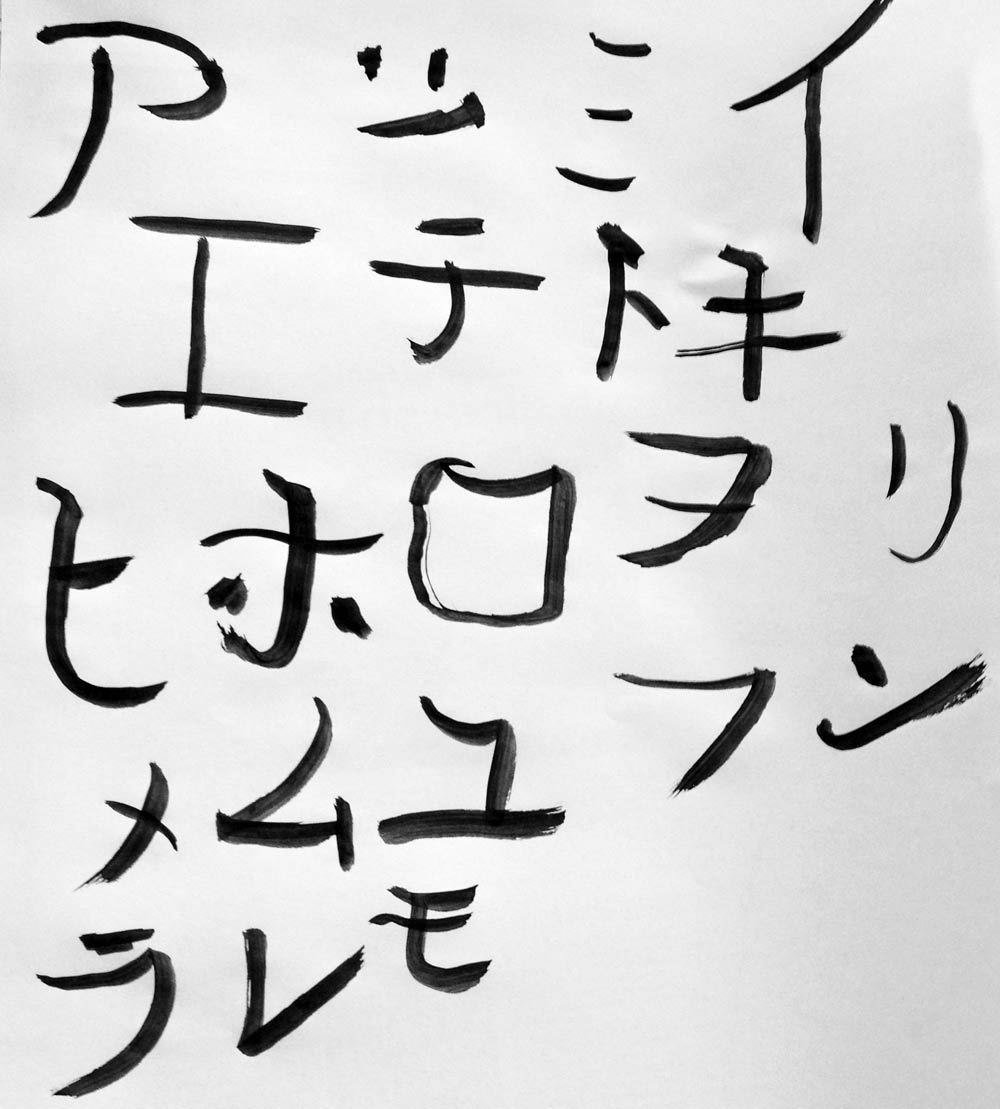 アツミイ
エテトキ
ヒホロヲリ
メムユフン
ラレモ